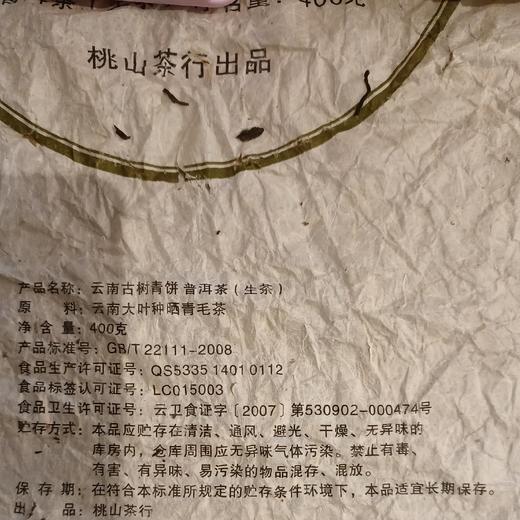 净含量:400克
桃山茶行出品
产品名称: 云南古树青饼 普洱茶(生茶)
原 料: 云南大叶种晒青毛茶
净 含 量: 400克
产品标准号: GB/T 22111-2008
食品生产许可证号: QS5335 1401 0112
食品标签认可证号: LC015003
食品卫生许可证号: 云卫食证字[2007]第530902-000474号
贮存方式: 本品应贮存在清洁、通风、避光、干燥、无异味的
库房内, 仓库周围应无异味气体污染。禁止有毒、
有害、有异味、易污染的物品混存、混放。
保 存 期: 在符合本标准所规定的贮存条件环境下, 本品适宜长期保存。
出 品: 桃山茶行